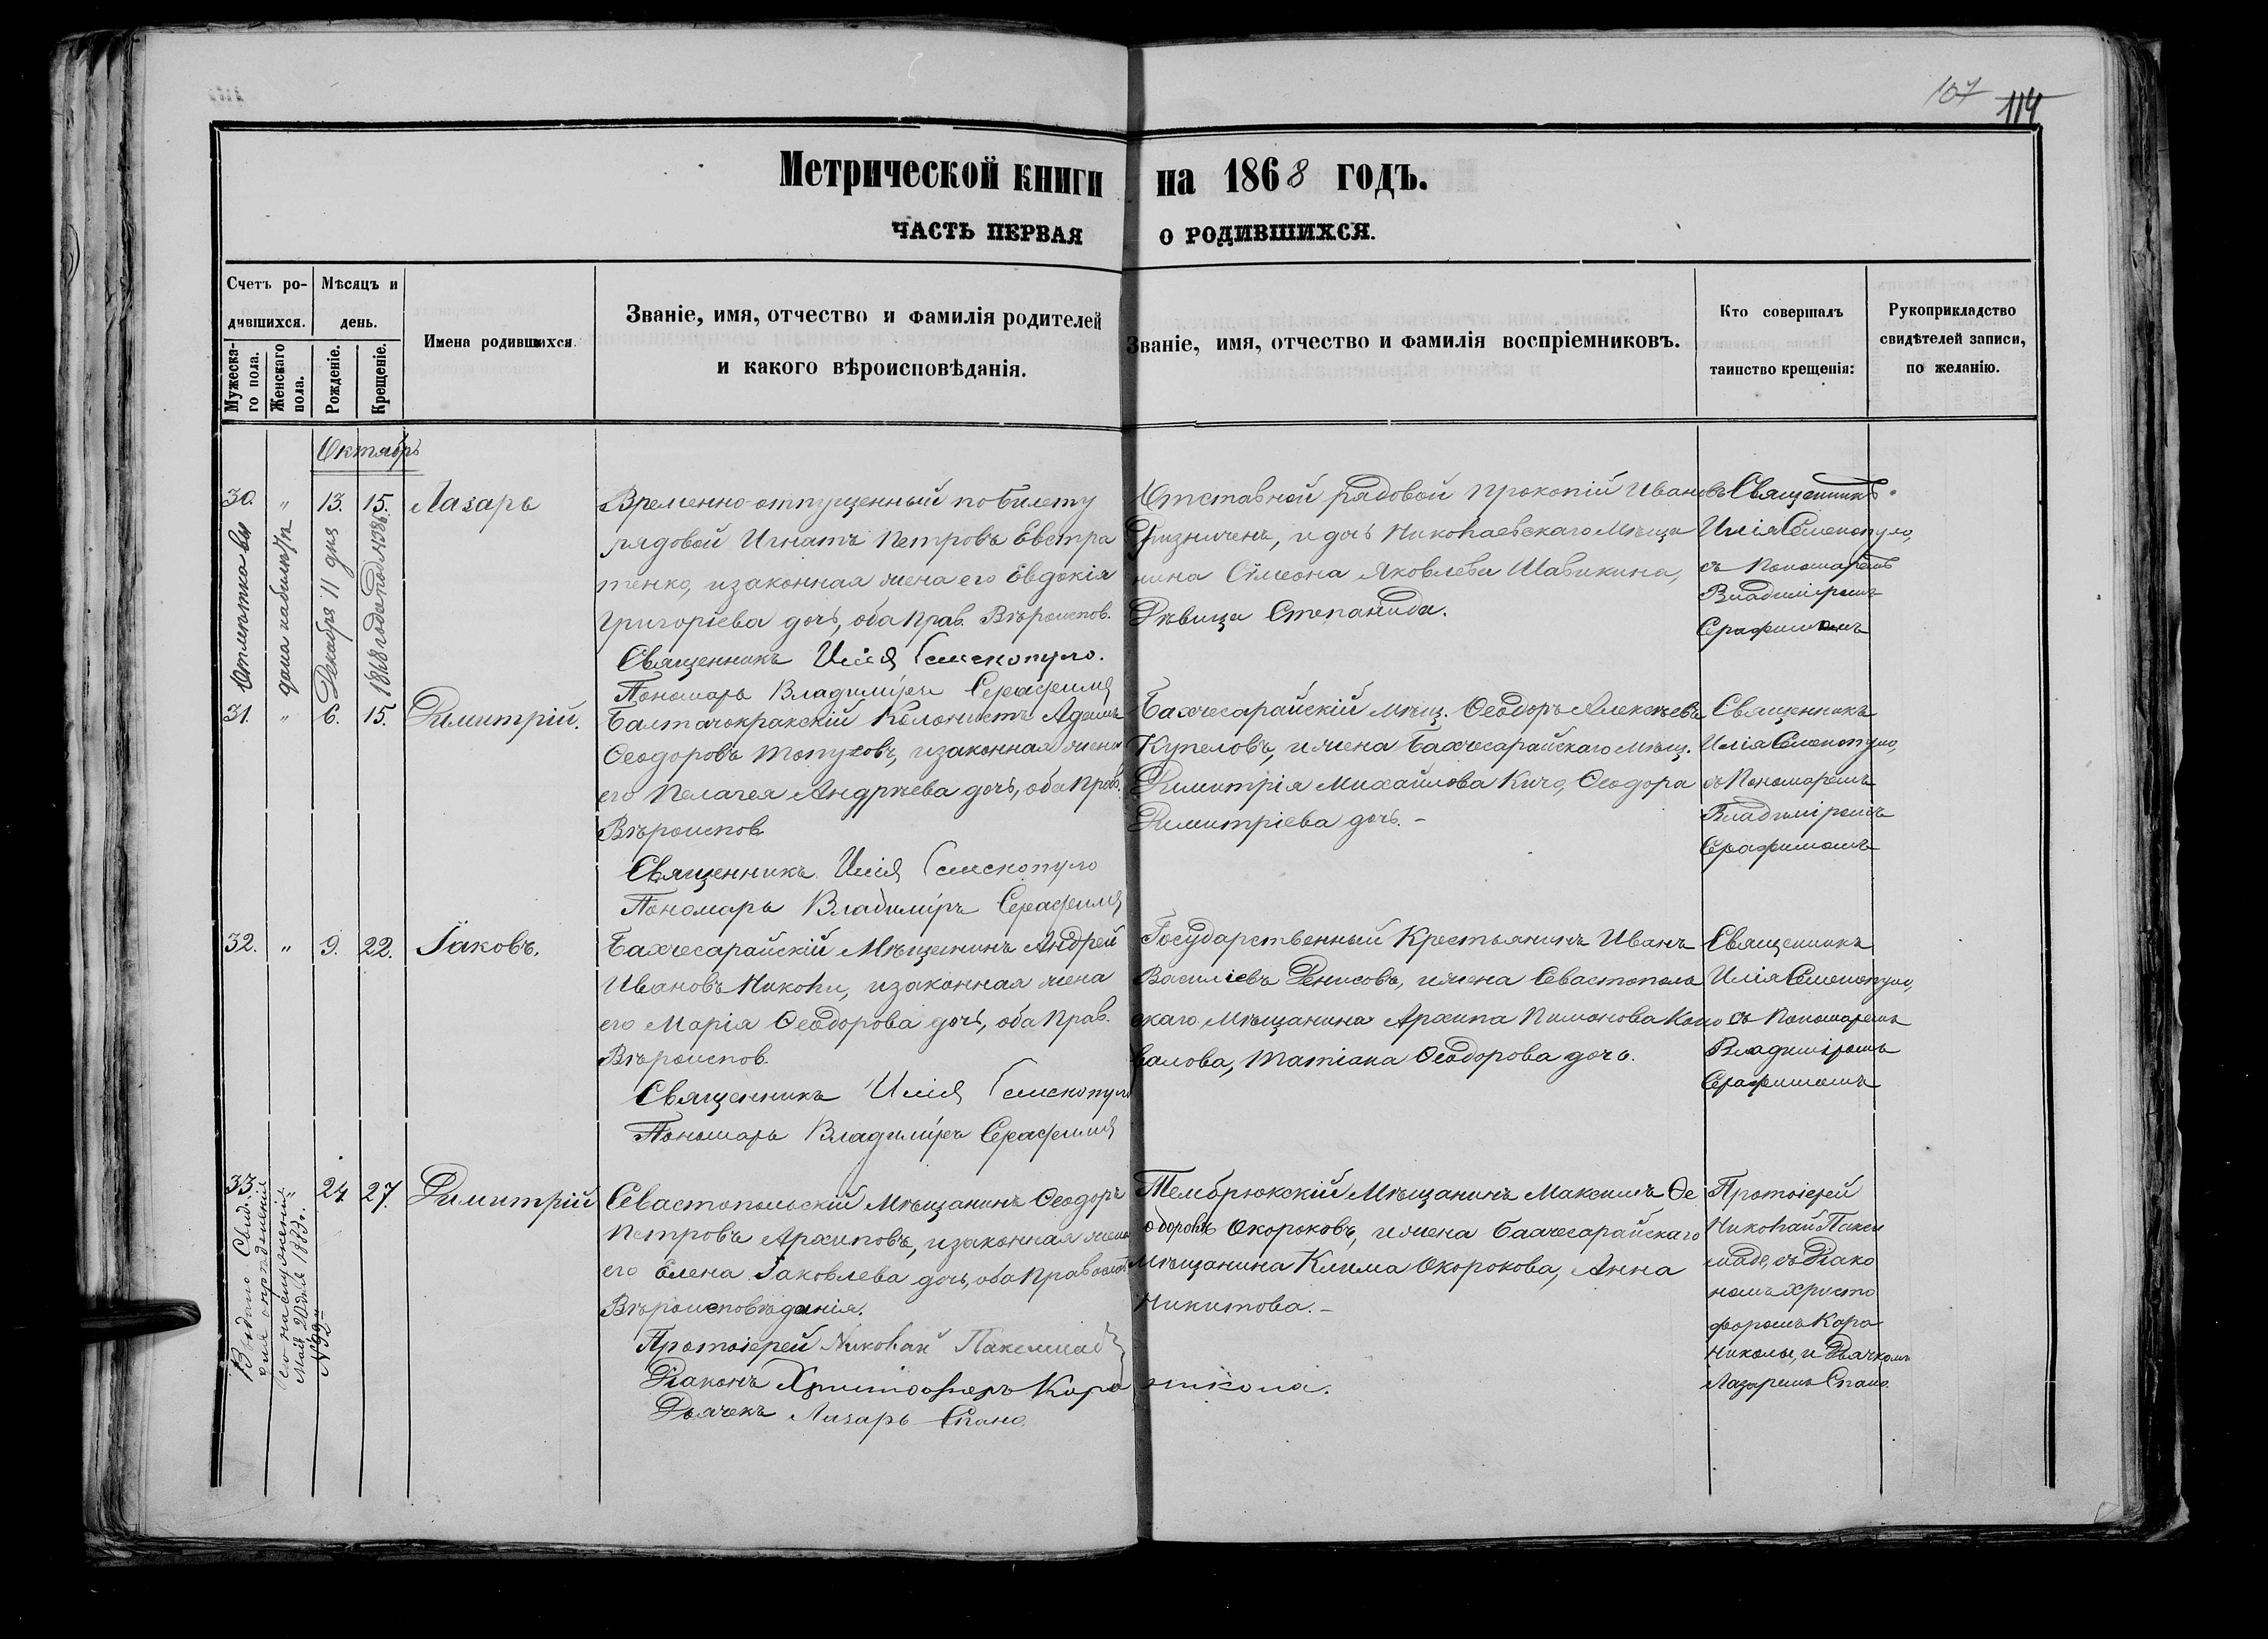 107 114
Метрической книги на 1868 годъ.
ЧАСТЬ ПЕРВАЯ О РОДИВШИХСЯ.
Счетъ родившихся.
Мужескаго пола.
Женскаго пола.
Мѣсяцъ и день.
Рожденіе.
Крещеніе.
Имена родившихся.
Званіе, имя, отчество и фамилія родителей
и какого вѣроисповѣданія.
Званіе, имя, отчество и фамилія воспріемниковъ.
Кто совершалъ
таинство крещенія:
Рукоприкладство
свидѣтелей записи,
по желанію.
Октябрь
30. " 13. 15. Лазарь
Временно-отпущенный по билету
рядовой Игнатъ Петровъ Евстра
тенко, и законная жена его Евдокія
Григоріева дочь, оба Прав. Вѣроиспов.
Священникъ Илія
Пономарь Владиміръ Серафимъ
Отставной рядовой Прокопій Ивановъ
Гризниченъ, и дочь Николаевскаго Мѣща
нина Сѵмеона Яковлева Шавикина,
Дѣвица Степанида.
Священникъ
Илія
съ Пономаремъ
Владиміромъ
Серафимомъ
Декабря 11 дня
1868 года подъ №386.
31. " 6. 15. Димитрій.
Балтачокракскій Колонистъ Адамъ
Ѳеодоровъ Топузовъ, и законная жена
его Пелагея Андрѣева дочь, оба Прав.
Вѣроиспов.
Священникъ Илія
Пономарь Владиміръ Серафимъ
Бахчесарайскій Мѣщ. Ѳеодоръ Алексѣевъ
Купеловъ, и жена Бахчесарайскаго Мѣщ.
Димитрія Михайлова Кичо, Ѳеодора
Димитріева дочь. –
Священникъ
Илія
съ Пономаремъ
Владиміромъ
Серафимомъ
32. " 9. 22. Іаковъ.
Бахчесарайскій Мѣщанинъ Андрей
Ивановъ Николи, и законная жена
его Марія Ѳеодорова дочь, оба Прав.
Вѣроиспов.
Священникъ Илія
Пономарь Владиміръ Серафимъ
Государственный Крестьянинъ Иванъ
Василіевъ Денисовъ, и жена Севастополь
скаго Мѣщанина Архипа Пимонова Коно
валова, Татіана Ѳеодорова дочь.
Священникъ
Илія
съ Пономаремъ
Владиміромъ
Серафимомъ
33. 24 27. Димитрій
Выдано Свид.
для опредѣленія
его на службу
Мая 20 дня 1883 г.
Севастопольскій Мѣщанинъ Ѳеодоръ
Петровъ Архиповъ, и законная жена
его Елена Іаковлева дочь, оба Православ
Вѣроисповѣданія.
Протоіерей Николай
Діаконъ Христофоръ Кара никола.
Дьячекъ Лазарь Спано.
Темрюкскій Мѣщанинъ Максимъ Ѳе
одоровъ Окороковъ, и жена Бахчесарайскаго
Мѣщанина Клима Окорокова, Анна
Никитова. –
Протоіерей
Николай Пакси
маде, съ Діако
номъ Христо
форомъ Кара
Николы, и Дьячкомъ
Лазаремъ Спано.